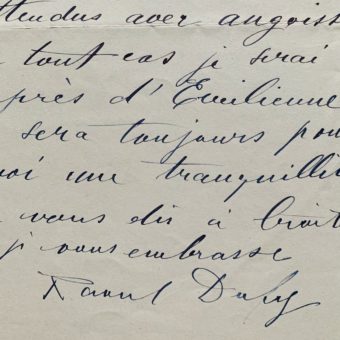 ttendus avec angoiss
tout cas je serai
près d'Emilienne
sera toujours pou
oi une tranquilli
vous dis à bient
j vous embrasse
Raoul Dufy